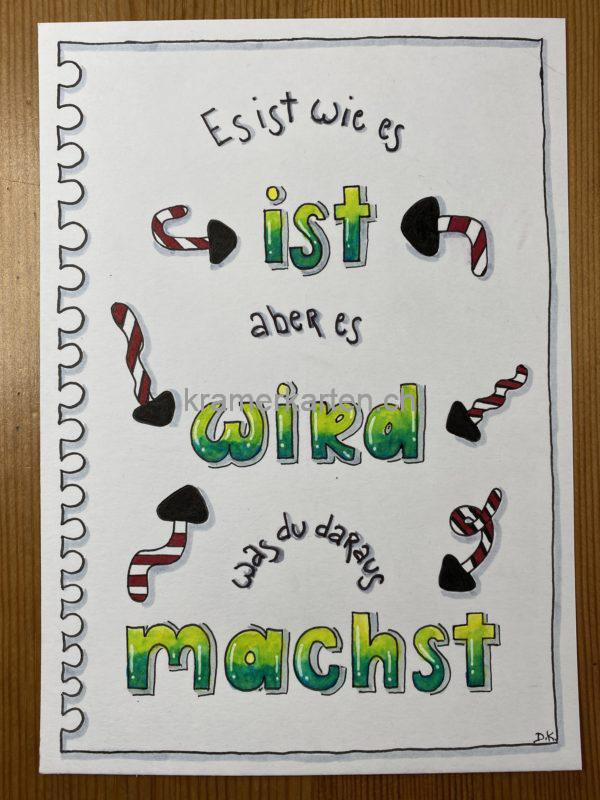 Es ist wie es
ist
aber es
kramerkarten.ch
wird
was du daraus
machst
D.K.